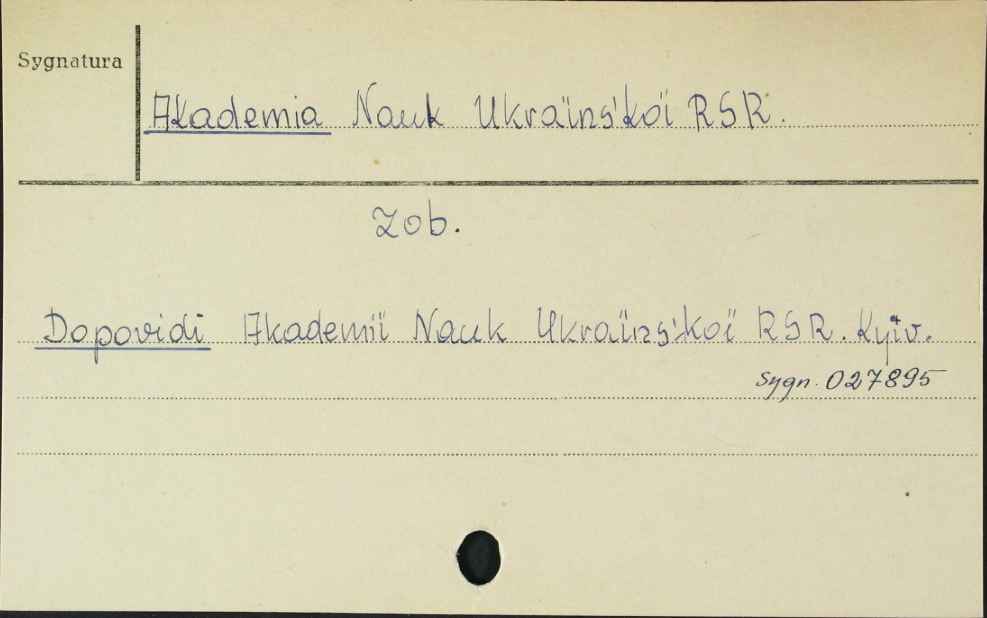 Sygnatura
Akademia Nauk Ukraïns'koï RSR.
Zob.
Dopovidi Akademiï Nauk Ukraïns'koï RSR. Kyïv.
Sygn. 027895